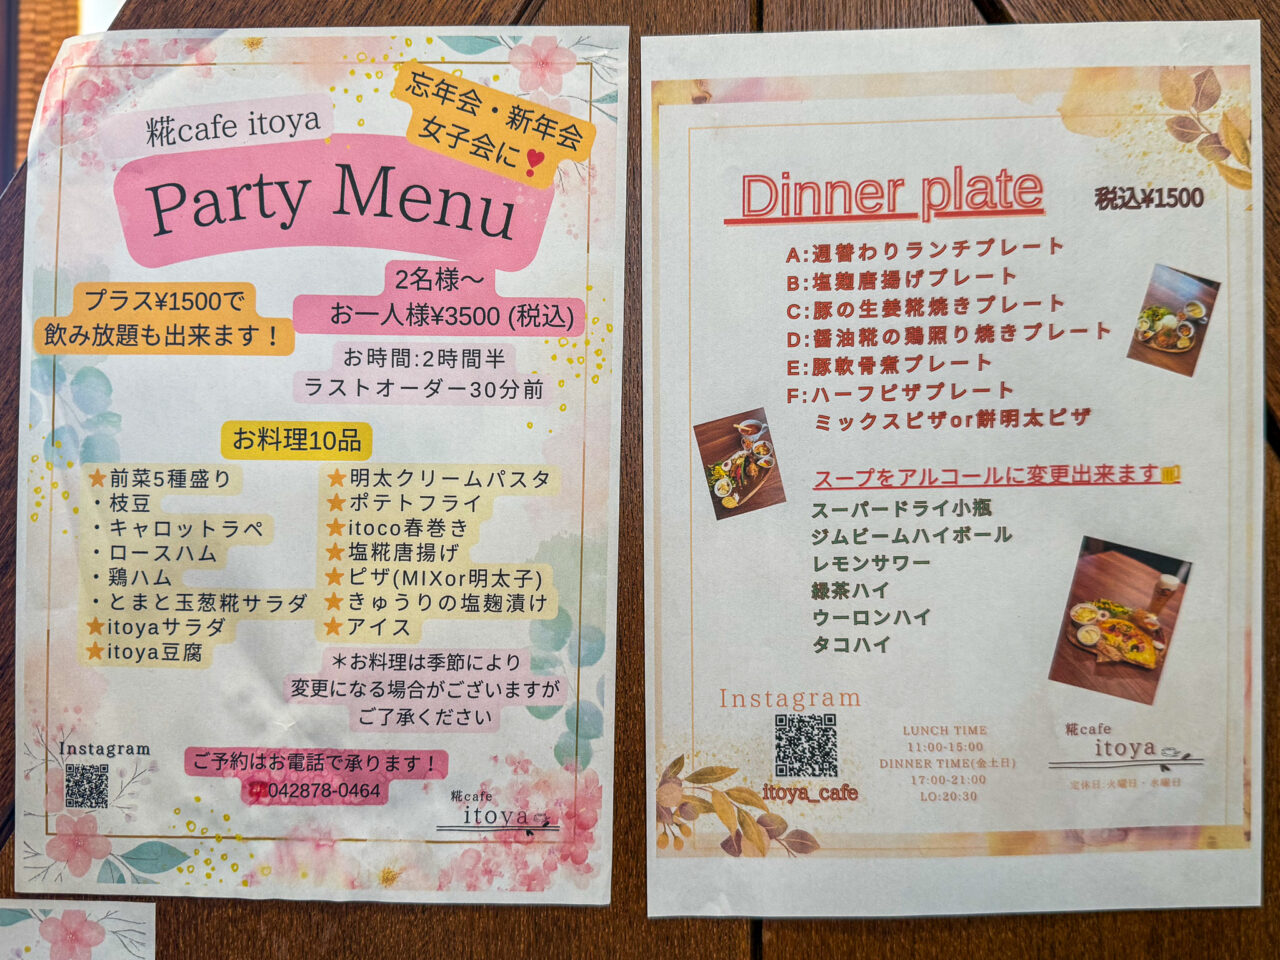 糀cafe itoya
忘年会・新年会
女子会に❣
Party Menu
プラス¥1500で
飲み放題も出来ます！
2名様〜
お一人様¥3500 (税込)
お時間:2時間半
ラストオーダー30分前
お料理10品
★前菜5種盛り
・枝豆
・キャロットラペ
・ロースハム
・鶏ハム
・とまと玉葱糀サラダ
★itoyaサラダ
★itoya豆腐
★明太クリームパスタ
★ポテトフライ
★itoco春巻き
★塩糀唐揚げ
★ピザ(MIXor明太子)
★きゅうりの塩麹漬け
★アイス
＊お料理は季節により
変更になる場合がございますが
ご了承ください
Instagram
ご予約はお電話で承ります！
042878-0464
糀cafe
itoya
Dinner plate
税込¥1500
A:週替わりランチプレート
B:塩麹唐揚げプレート
C:豚の生姜糀焼きプレート
D:醤油糀の鶏照り焼きプレート
E:豚軟骨煮プレート
F:ハーフピザプレート
ミックスピザor餅明太ピザ
スープをアルコールに変更出来ます
スーパードライ小瓶
ジムビームハイボール
レモンサワー
緑茶ハイ
ウーロンハイ
タコハイ
Instagram
itoya_cafe
LUNCH TIME
11:00-15:00
DINNER TIME(金土日)
17:00-21:00
LO:20:30
糀cafe
itoya
定休日.火曜日・水曜日